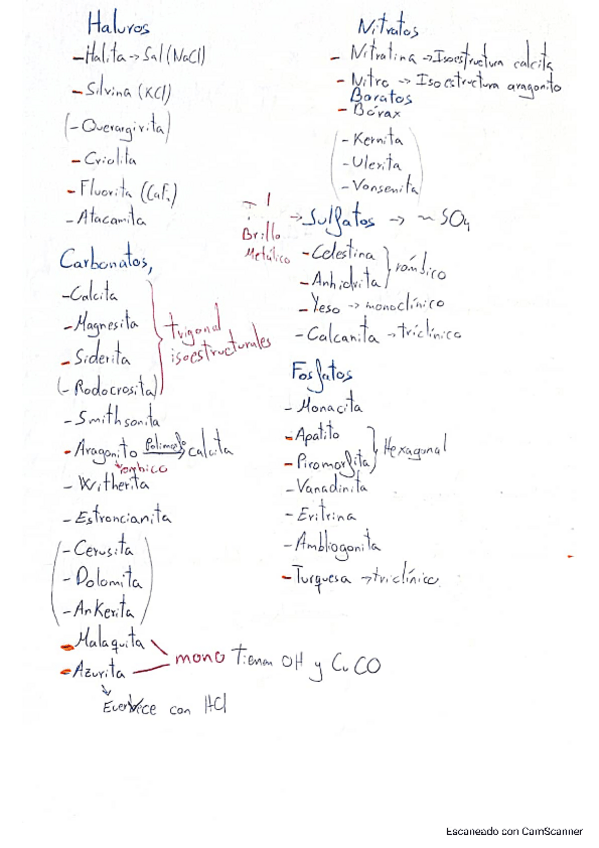 Haluros
- Halita → Sal (NaCl)
- Silvina (KCl)
(- Querargirita)
- Criolita
- Fluorita (CaF₂)
- Atacamita
Carbonatos,
- Calcita
- Magnesita
- Siderita
(- Rodocrosita)
trigonal
isoestructurales
- Smithsonita
- Aragonito polimorfo → calcita
rómbico
- Witherita
- Estroncianita
(- Cerusita
- Dolomita
- Ankerita)
- Malaquita
- Azurita
mono Tienen OH y Cu CO
Evervece con HCl
Nitratos
- Nitratina → Isoestructura calcita
- Nitro → Isoestructura aragonito
Boratos
- Bórax
(- Kernita
- Ulexita
- Vonsenita)
Brillo
Metálico
→ Sulfatos → ~ SO₄
- Celestina
- Anhidrita
rómbico
- Yeso → monoclínico
- Calcanita → triclínico
Fosfatos
- Monacita
- Apatito
- Piromorfita
Hexagonal
- Vanadinita
- Eritrina
- Ambligonita
- Turquesa → triclínico
Escaneado con CamScanner